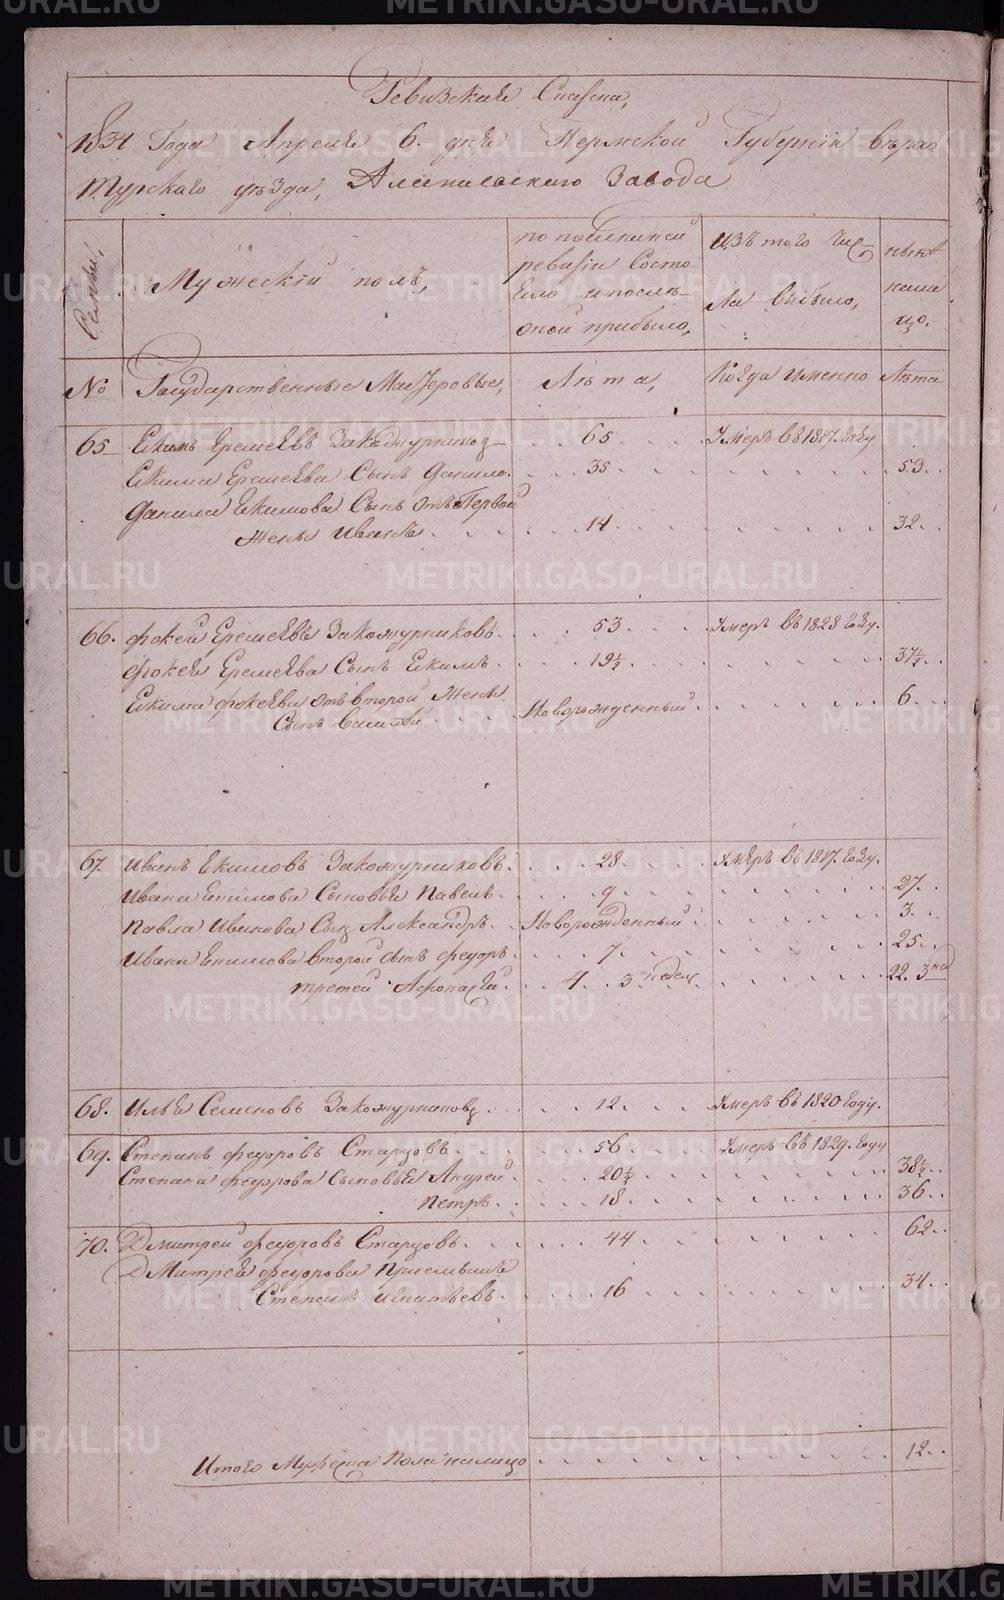 Ревизская Сказка,
1834 Года Апреля 6. дня Пермской Губернiи верхо
Турскаго уѣзда, Алапаевскаго Завода
Семьи,
Мужескiй полъ,
по последней
ревизiи Состо
яло и послѣ
оной прибыло,
изъ того Чис
ла выбыло,
нынѣ
нали
цо.
№ Государственные Мастеровые, Лѣта, Когда именно Лѣта
65 Екимъ Еремеевъ Закожурников 65 Умеръ въ 1817. году
Екима Еремеева Сынъ Данило. 35 53.
Данила Екимова Сынъ отъ Первой
жены Иванъ 14 32.
66. Фокей Еремеевъ Закожурниковъ. 53 Умеръ въ 1828 году.
Фокея Еремеева Сынъ Екимъ. 19½ 37½.
Екима Фокеева отъ второй Жены
Сынъ Василей Новорожденный 6.
67. Иванъ Екимовъ Закожурниковъ 28 Умеръ въ 1817. году.
Ивана Екимова Сыновья Павелъ. 9 27.
Павла Иванова Сын Александръ. Новорожденный 3.
Ивана Екимова второй сынъ Федоръ 7 25.
третей Афонасей. 4. 3 недел 22. 3 не
68. Илья Семеновъ Закожурников 12. Умеръ въ 1820 году.
69. Степанъ Федоровъ Старцовъ. 56 Умеръ въ 1829. году
Степана Федорова Сыновья Андрей 20½ 38½.
Петръ. 18 36.
70. Дмитрей Федоровъ Старцовъ. 44 62.
Дмитрея Федорова Приемышъ
Степанъ Игнатьевъ. 16 34.
Итого Мужеска Пола налицо 12.
METRIKI.GASO-URAL.RU